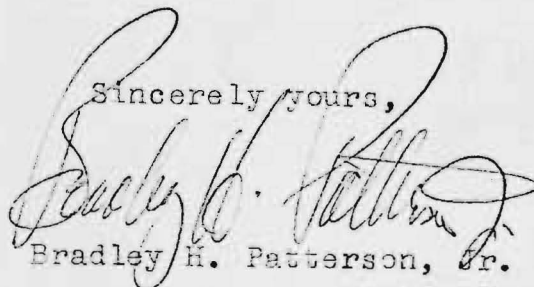 Sincerely yours,
Bradley H. Patterson Jr.
Bradley H. Patterson, Jr.